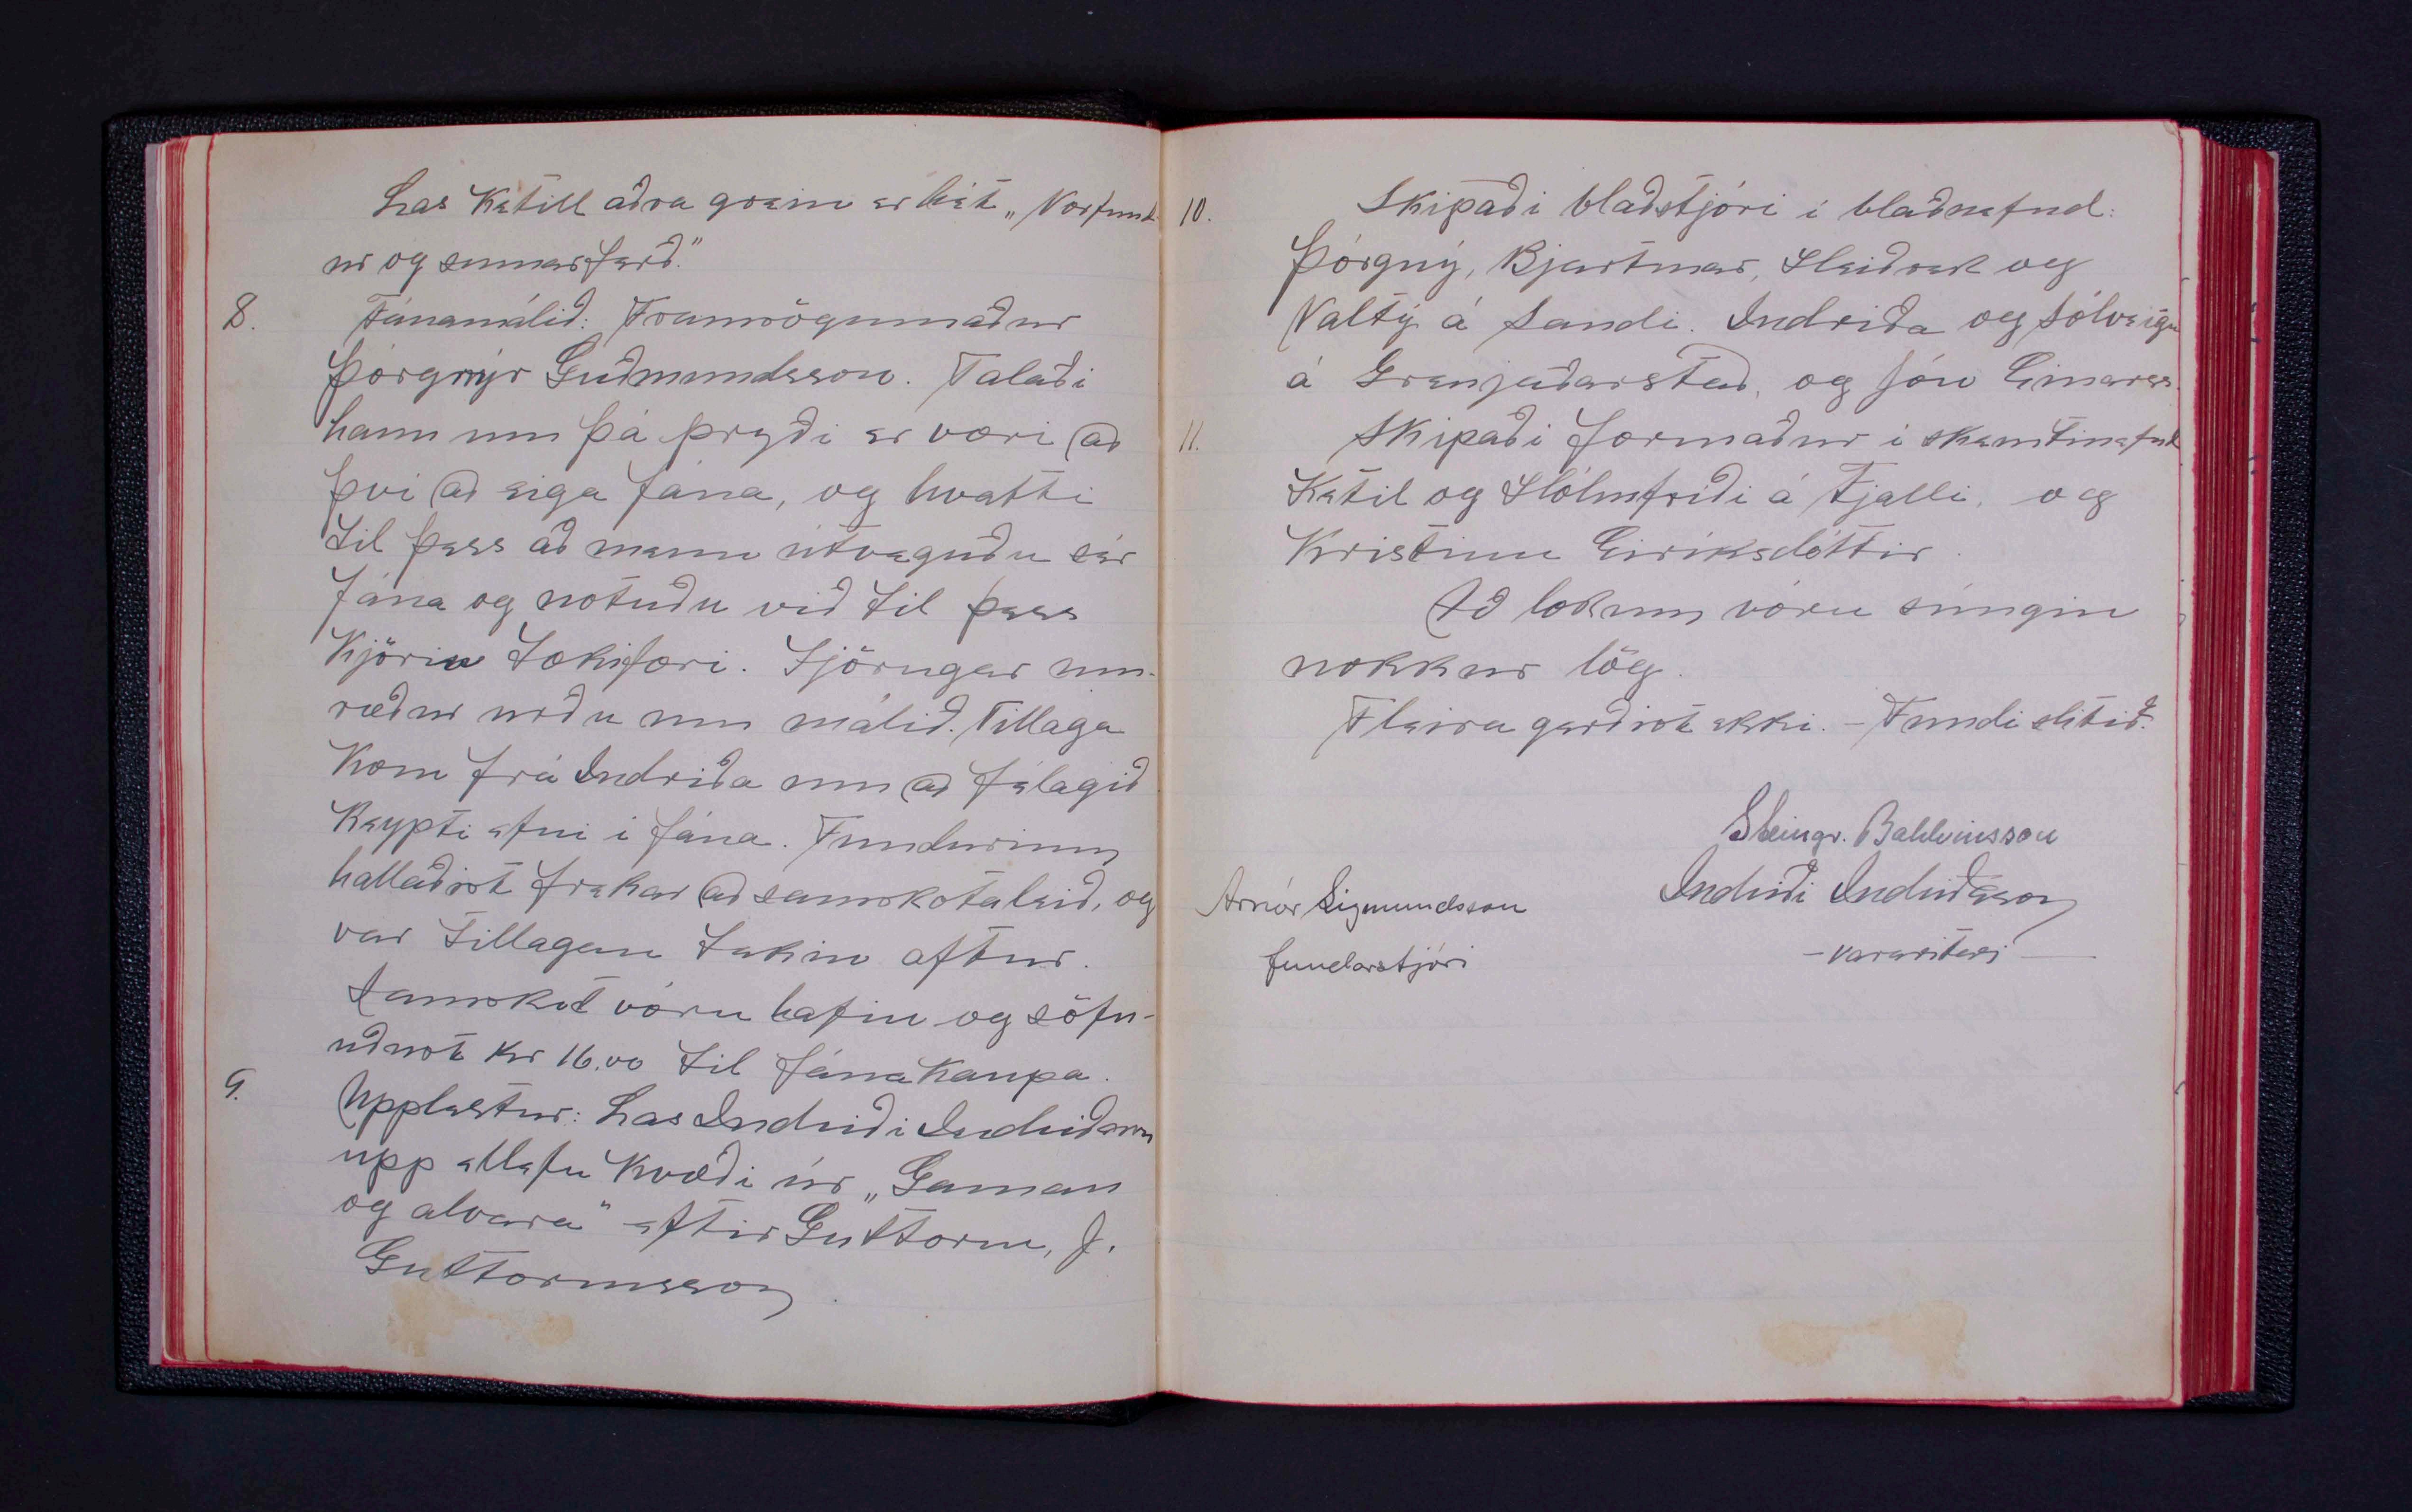 Las Ketill aðra grein er hét „Vorfund
ur og sumarferð."
8. Fánamálið: Framsögumaður
Þórgnýr Guðmundsson. Talaði
hann um þá prýði er væri að
því að eiga fána, og hvatti
til þess að menn útveguðu sér
fána og notuðu við til þess
kjörin tækifæri. Fjörugar um-
ræður urðu um málið. Tillaga
kom frá Indriða um að félagið
keypti efni í fána. Fundurinn
hallaðist frekar að samskotaleið, og
var tillagan tekin aftur.
Samskot vóru hafin og söfn-
uðust kr 16.00 til fánakaupa.
9. Upplestur: Las Indriði Indriðason
upp ellefu kvæði úr „Gaman
og alvara" eftir Guttorm, J.
Guttormsson.
10. Skipaði blaðstjóri í blaðnefnd:
Þórgný, Bjartmar, Heiðrek og
Valtý á Sandi. Indriða og Sólveigu
á Grenjaðarstað, og Jón Einarss.
11. Skipaði formaður í skemtinefnd
Ketil og Hólmfríði á Fjalli, og
Kristínu Eiríksdóttir.
Að lokum vóru súngin
nokkur lög.
Fleira gerðist ekki. - Fundi slitið.
Steingr. Baldvinsson
Arnór Sigmundsson
fundarstjóri
Indriði Indriðason
- vararitari -